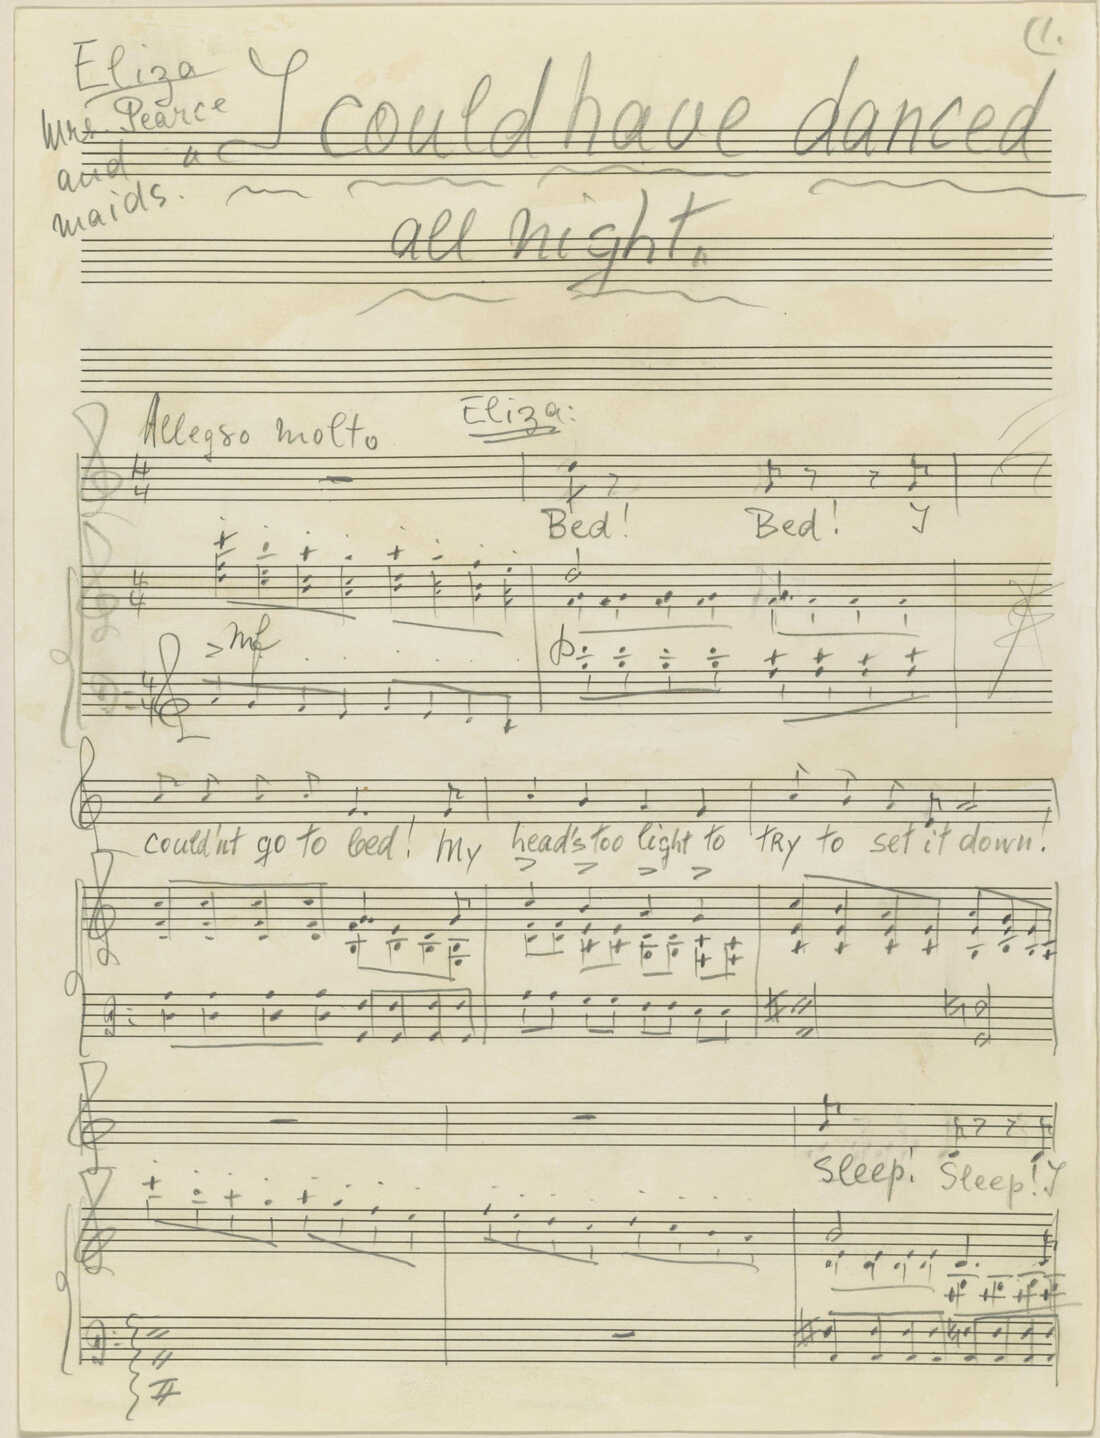 1.
Eliza
Mrs. Pearce
and
maids.
"I could have danced
all night"
Allegro molto
Eliza:
4 4
Bed! Bed! I
4 4
mf
p
4 4
could'nt go to bed! My head's too light to try to set it down!
Sleep! Sleep! I